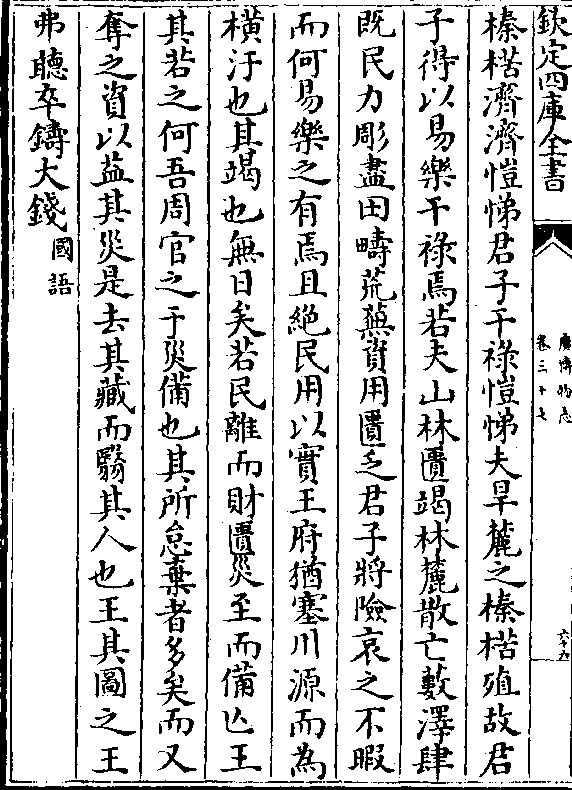 欽定四庫全書
廣博物志
卷三十七
六十九
榛楛濟濟愷悌君子干祿愷悌夫旱麓之榛楛殖故君
子得以易樂干祿焉若夫山林匱竭林麓散亡藪澤肆
既民力彫盡田疇荒蕪資用匱乏君子將險哀之不暇
而何易樂之有焉且絕民用以實王府猶塞川源而為
橫汙也其竭也無日矣若民離而財匱災至而備亡王
其若之何吾周官之于災備也其所怠棄者多矣而又
奪之資以益其災是去其藏而翳其人也王其圖之王
弗聽卒鑄大錢國語